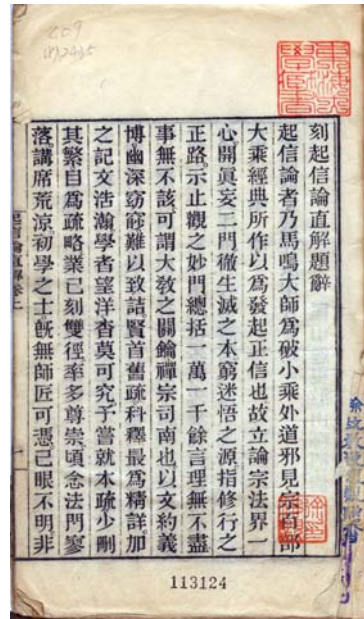 刻起信論直解題辭
起信論者乃馬鳴大師爲破小乘外道邪見宗百部
大乘經典所作以爲發起正信也故立論宗法界一
心開眞妄二門徹生滅之本窮迷悟之源指修行之
正路示止觀之妙門總括一萬一千餘言理無不盡
事無不該可謂大教之關鑰禪宗司南也以文約義
博幽深窈窅難以致詰賢首舊疏科釋最爲精詳加
之記文浩瀚學者望洋杳莫可究予嘗就本疏少刪
其繁自爲疏略業已刻雙徑率多尊崇頃念法門寥
落講席荒涼初學之士既無師匠可憑己眼不明非
起信論直解卷上
一
113124